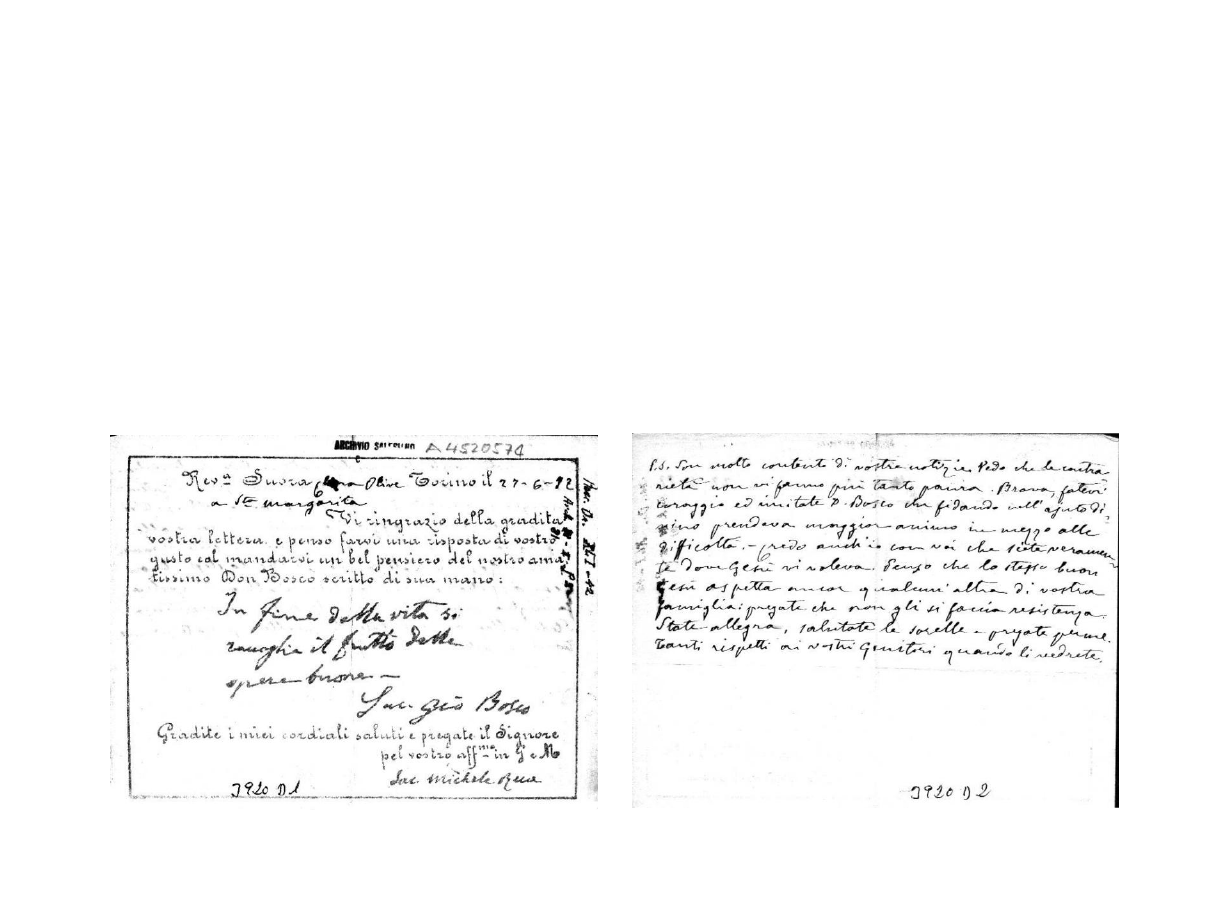 ARCHIVIO SALESIANO A4520574
C
Rev.a Suora Olive Torino il 27-6-92
a Sta Margarita
Vi ringrazio della gradita
vostra lettera, e penso farvi una risposta di vostro
gusto col mandarvi un bel pensiero del nostro ama-
tissimo Don Bosco scritto di sua mano:
In fine della vita si
raccoglie il frutto delle
opere buone -
Sac. Gio Bosco
Gradite i miei cordiali saluti e pregate il Signore
pel vostro aff.mo in G e M
Sac. Michele Rua
3920 D1
P.S. Son molto contento di vostre notizie. Vedo che le contra-
rietà non vi fanno più tanto paura. Brava, fatevi
coraggio ed imitate D. Bosco che fidando nell'ajuto di-
vino prendeva maggior animo in mezzo alle
difficoltà. - Credo anch'io con voi che siete veramen-
te dove Gesù vi voleva. Penso che lo stesso buon
Gesù aspetta ancor qualcun'altra di vostra
famiglia: pregate che non gli si faccia resistenza.
State allegra, salutate le sorelle e pregate per me.
Tanti rispetti ai vostri Genitori quando li vedrete.
3920 D2